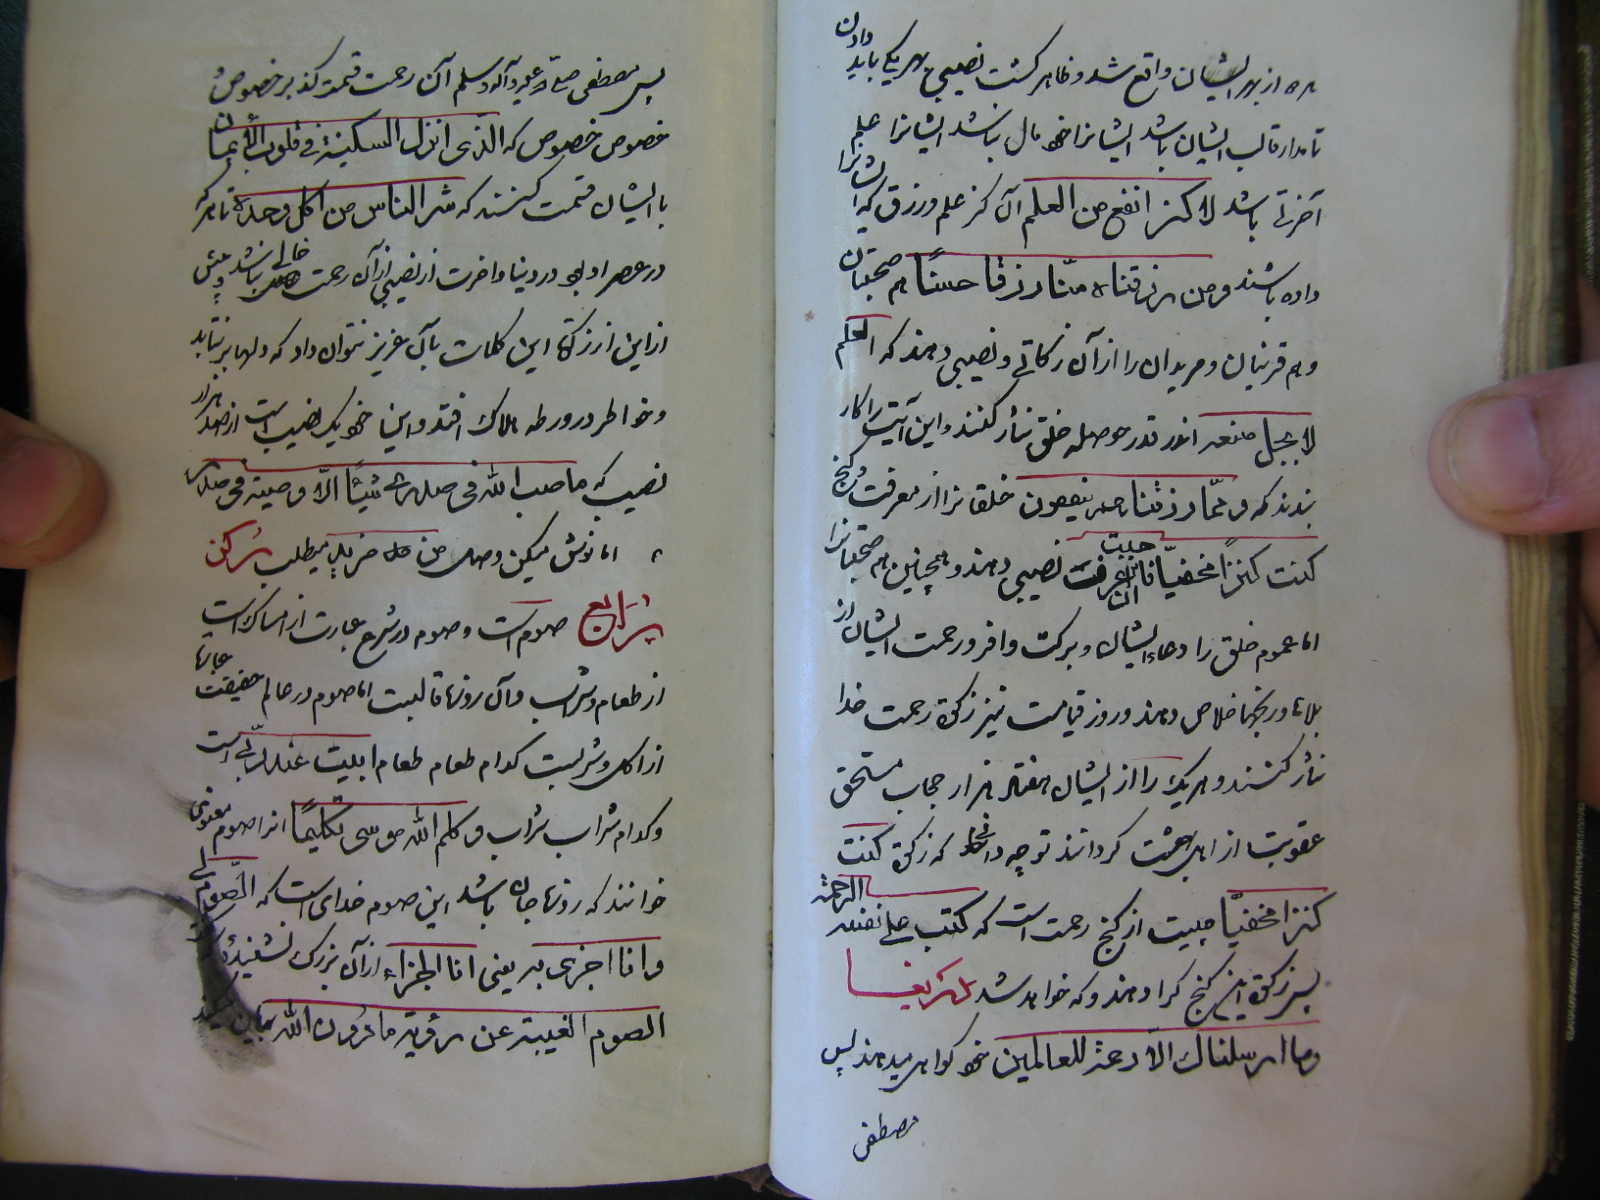 بهره از بهر ایشان واقع شد و ظاهر گشت نصیبی بهر یکی باید دادن
تا مدار قالب ایشان باشد ایشانرا خود مال باشد ایشانرا علم
آخرتی باشد لا کنز انفع من العلم آن کنز علم و رزق که ایشانرا
داده باشند و من رزقناه منّا رزقا حسنًا هم صحبتان
و هم قرینان و مریدان را از آن زکاتی و نصیبی دهند که العلم
لا یحل منعه اندر قدر حوصله خلق نثار کنند و این آیت را کار
بندند که و ممّا رزقناهم ینفقون خلقانرا از معرفت گنج
کنت کنزًا مخفیّا فاحببت ان اعرف نصیبی دهند و همچنین هم صحبتانرا
اما عموم خلق را دعاء ایشان و برکت وافر و رحمت ایشان از
بلاها و رنجها خلاص دهند و روز قیامت نیز زکوة رحمت خدا
نثار کنند و هر یک را از ایشان هفتاد هزار حجاب مستحق
عقوبت از اهل بهشت گردانند تو چه دانی که زکوة کنت
کنزا مخفیّا چیست از گنج رحمت است که کتب علی نفسه الرحمة
پس زکوة این گنج کرا دهند و که خواهد شد
وما ارسلناک الّا رحمة للعالمین خود گواهی میدهند پس
مصطفی
پس مصطفی صلی الله علیه وآله وسلم آن رحمت قسمت کند بر خصوص و
خصوص خصوص که الّذی انزل السکینة فی قلوب المؤمنین تا
با ایشان قسمت کنند که شر الناس من اکل وحده تا هر که
در عصر او بود در دنیا و اخرت از نصیبی از آن رحمت خالی نباشد بیش
از این از زکوة این کلمات بآن عزیز نتوان داد که دلها بر نتابد
و خواطر در ورطه هلاک افتد و این خود یک نصیب است از صد هزار
نصیب که ما صب الله فی صدری شیئًا الّا و صبته فی صدر
اما نوش میکن و هل من مزید میطلب رکن
رابع صوم است و صوم در شرع عبارت از امساک است
از طعام و شراب و آن روزه قالبست اما صوم در عالم حقیقت عبارت
از اکل و شربست کدام طعام طعام ابیت عند ربّی است
و کدام شراب شراب و کلم الله موسی تکلیمًا انرا صوم معنوی
خوانند که روزه جان باشد این صوم خدای است که الصّوم لی
و انا اجزی به یعنی انا الجزاء از آن بزرگ نشنیدهٔ
الصوم الغیبة عن رؤیة ما دون الله بیان میکند